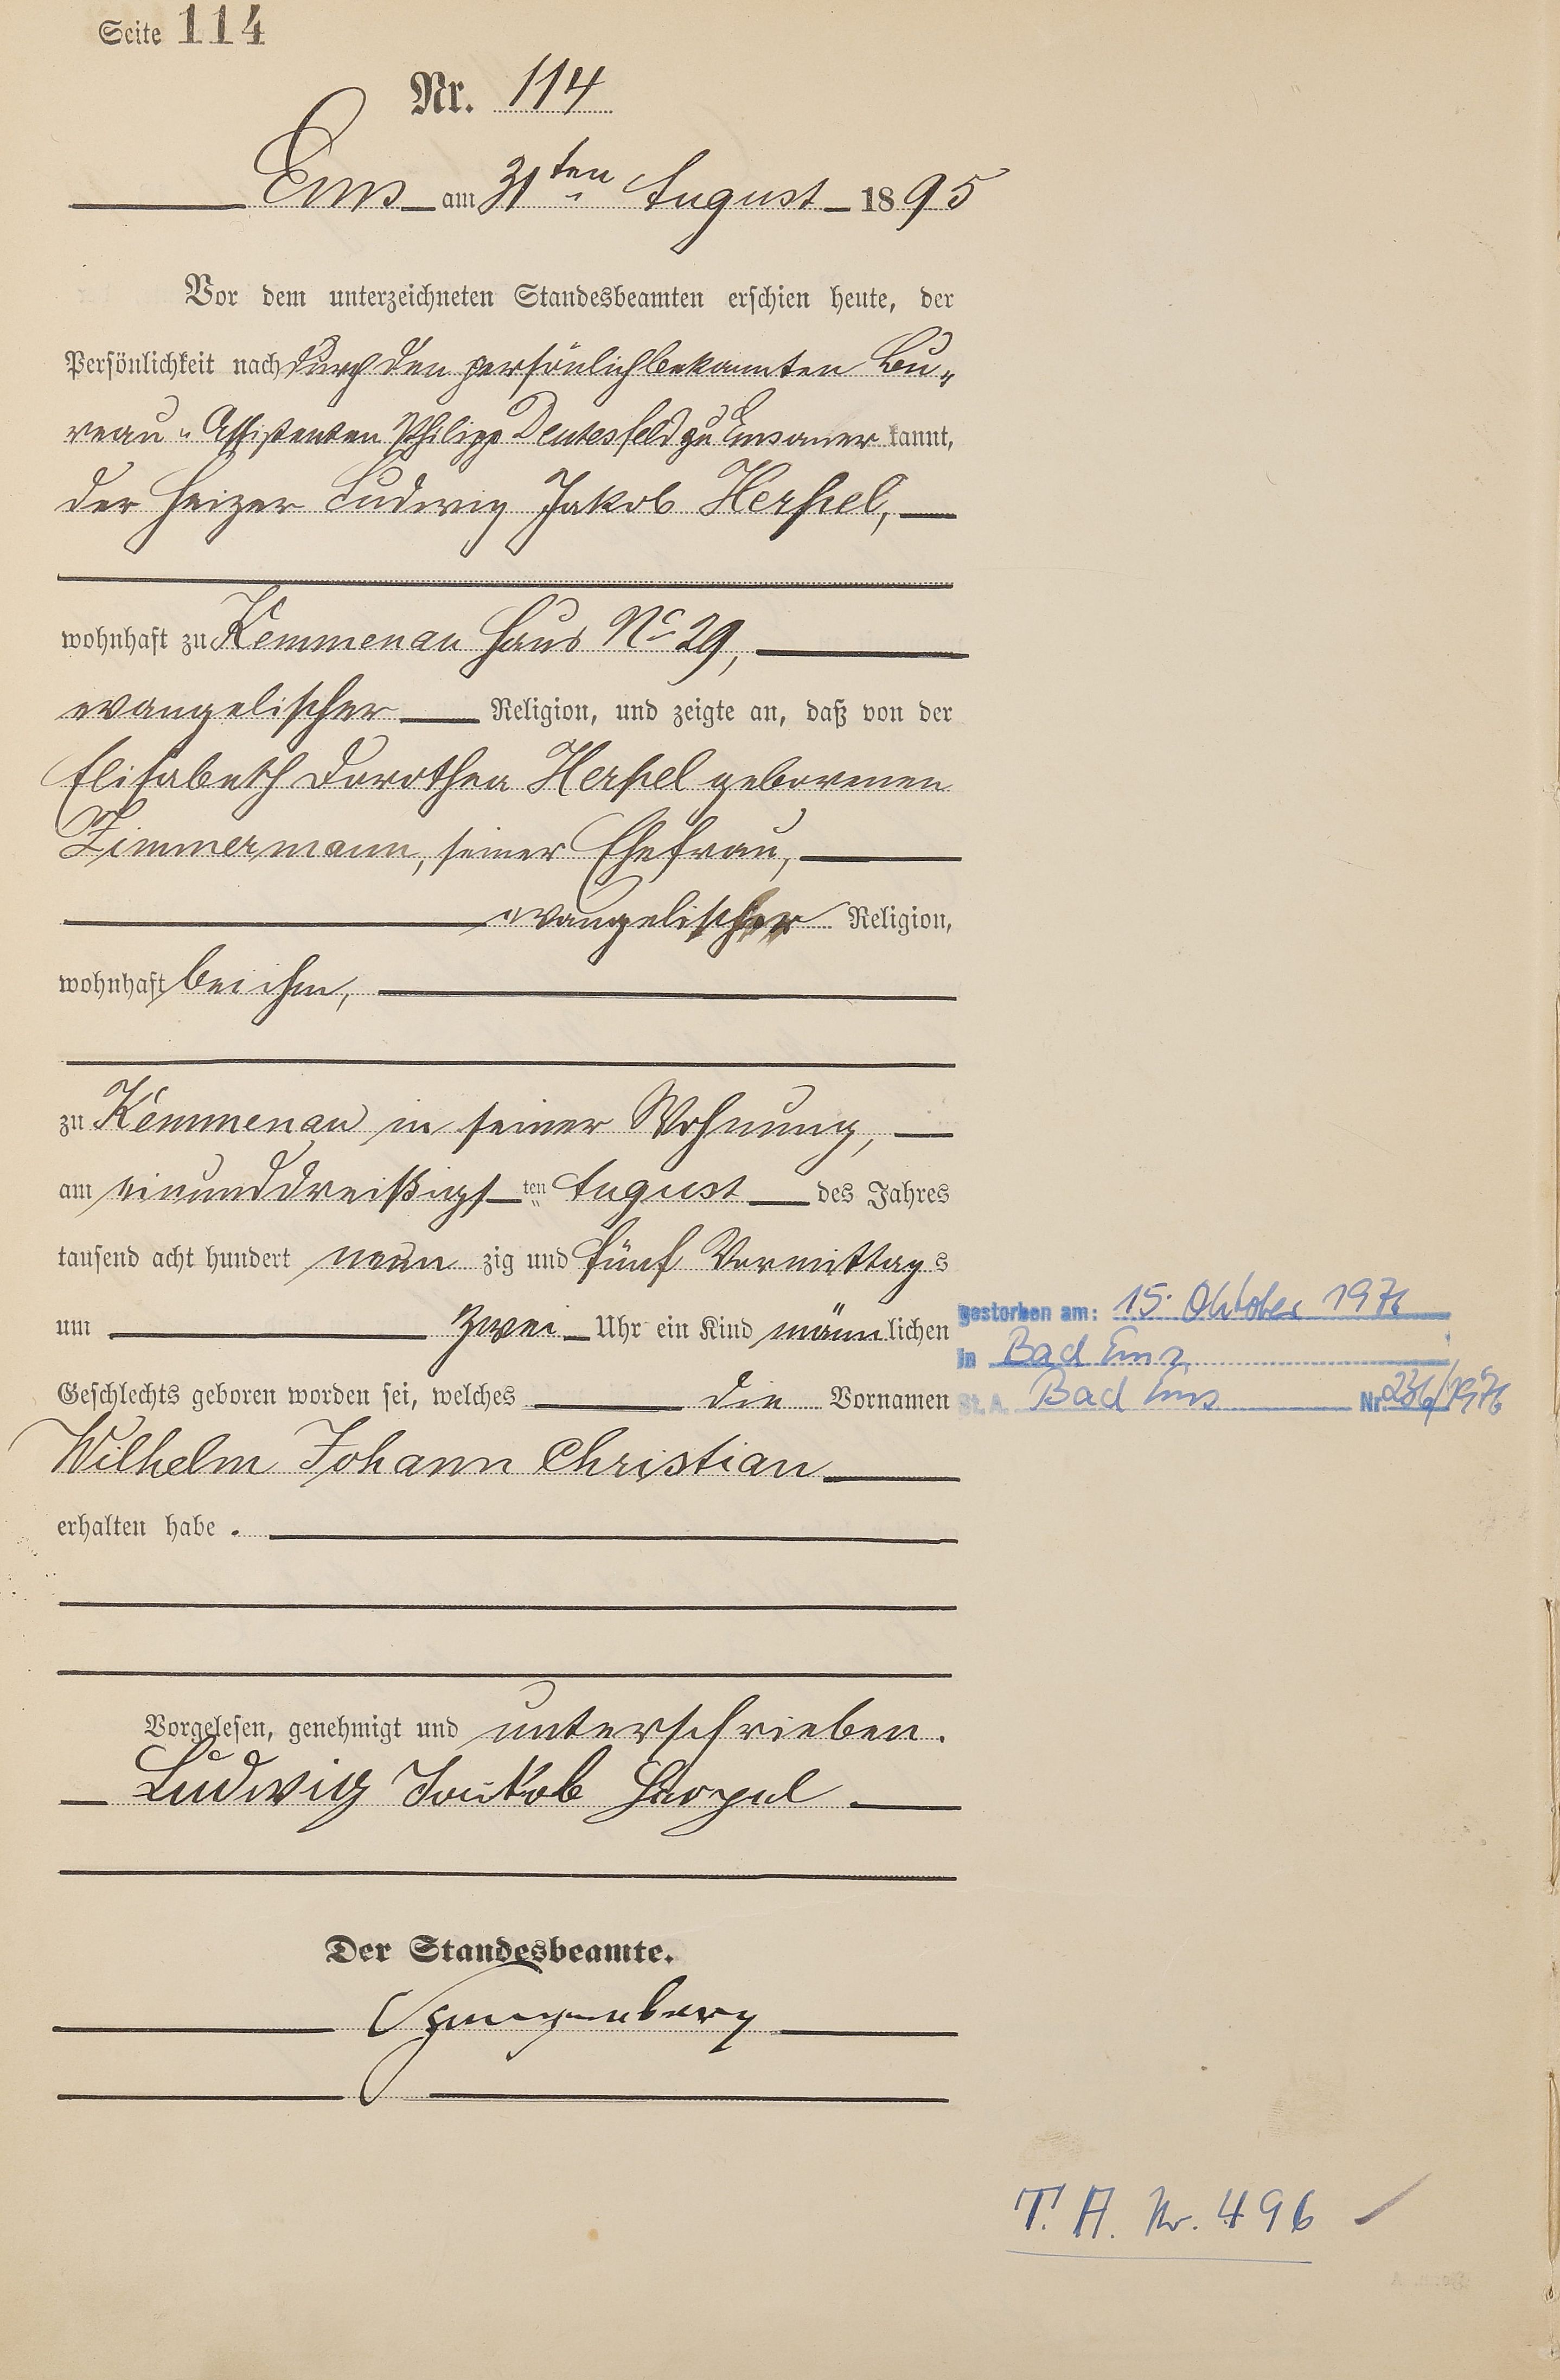 Seite 114
Nr. 114
Ems am 31ten August 1895
Vor dem unterzeichneten Standesbeamten erschien heute, der
Persönlichkeit nach durch den persönlich bekannten Bu-
reau-Assistenten Philipp Deutesfeld zu Ems anerkannt,
der Heizer Ludwig Jakob Herpel,
wohnhaft zu Kemmenau Haus No 29,
evangelischer Religion, und zeigte an, daß von der
Elisabeth Dorothea Herpel gebornenen
Zimmermann, seiner Ehefrau,
evangelischer Religion,
wohnhaft bei ihm,
zu Kemmenau in seiner Wohnung,
am einunddreißigsten August des Jahres
tausend acht hundert neunzig und fünf Vormittags
um zwei Uhr ein Kind männlichen
Geschlechts geboren worden sei, welches die Vornamen
Wilhelm Johann Christian
erhalten habe.
Vorgelesen, genehmigt und unterschrieben.
Ludwig Jakob Herpel
Der Standesbeamte.
Spangenberg
gestorben am: 15. Oktober 1976
in Bad Ems
St. A. Bad Ems Nr. 236/1976
T. A. Nr. 496